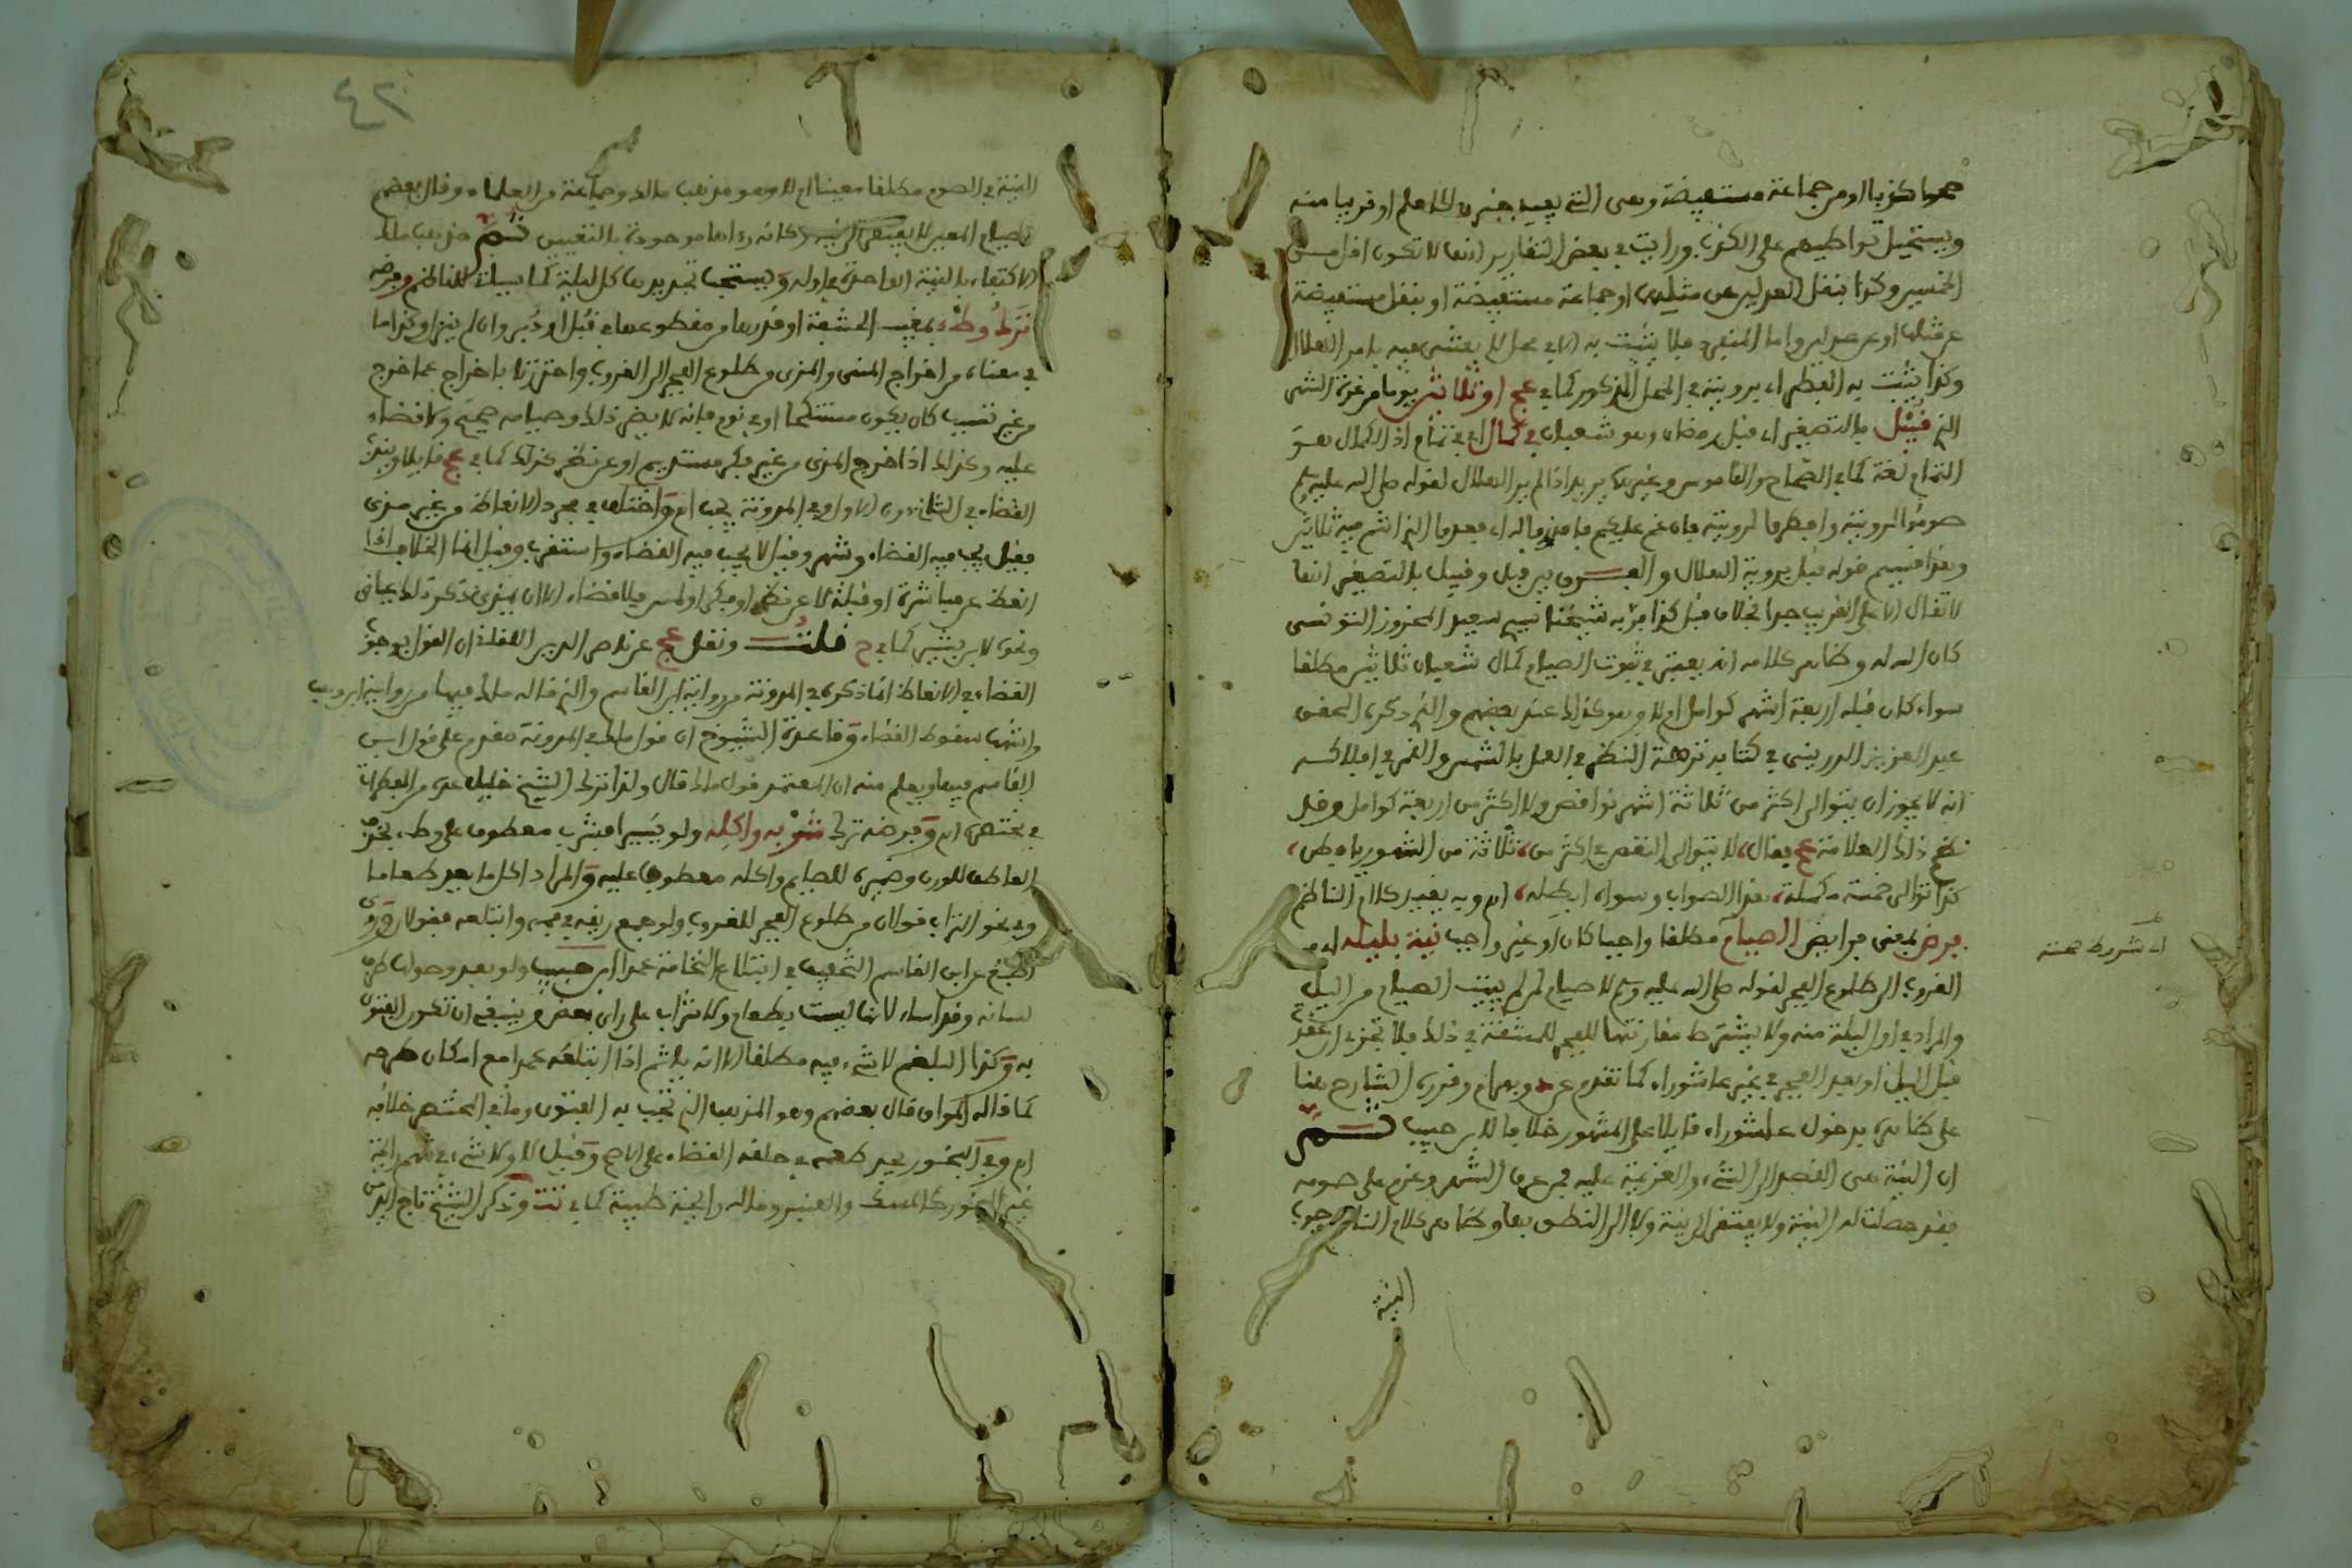 جمعها كذبا او من جماعة مستفيضة وهى التى يفيد خبرها العلم او قريبا منه
ويستحيل تواطيهم على الكذب ورايت في بعض التقارير انها لا تكون اقل من
الخمسة وكذا بنقل العدلين عن مثلهما او جماعة مستفيضة او بنقل مستفيضة
عن مثلها او عن عدلين واما المنفرد فلا يثبت به الا في محل لا يعتنى فيه بامر الهلال
وكذا يثبت به الفطر اي برويته في المحل المذكور كما في عج او ثلاثين يوما من غرة الشهر
الذي قبيل بالتصغير اي قبل رمضان وهو شعبان في كمال اي في تمام اذ الكمال هو
التمام لغة كما في الصحاح والقاموس وغيرهما يريد اذا لم ير الهلال لقوله صلى الله عليه وسلم
صوموا لرويته وافطروا لرويته فان غم عليكم فاقدروا له اي فعدوا الذي انتم فيه ثلاثين
وهذا قسيم قوله قبل بروية الهلال والفرق بين قبل وقبيل بالتصغير انها
لا تقال الا على القريب جدا بخلاف قبل كذا قرره شيخنا سعيد المحروز التونسى
كان الله له وظاهر كلامه انه يعتبر في ثبوت الصيام كمال شعبان ثلاثين مطلقا
سواء كان قبله اربعة اشهر كوامل ام لا وهو كذلك عند بعضهم والذي ذكره المحقق
عبد العزيز الدرينى في كتابه نزهة النظر في العمل بالشمس والقمر
انه لا يجوز ان يتوالى اكثر من ثلاثة اشهر نواقص ولا اكثر من اربعة كوامل وقد
نظم ذلك العلامة عج فقال، لا يتوالى النقص في اكثر من، ثلاثة من الشهور يا فطن،
كذا توالى خمسة مكملة، هذا الصواب وسواه ابطله، اه وبه يقيد كلام الناظم
فرض بمعنى فرايض الصيام مطلقا واجبا كان او غير واجب نية بليله اي من
الغروب الى طلوع الفجر لقوله صلى الله عليه وسلم لا صيام لمن لم يبيت الصيام من الليل
والمراد في اول ليلة منه ولا يشترط مقارنتها للفجر للمشقة في ذلك فلا تجزي ان عقد
قبل الليل او بعد الفجر في غير عاشوراء كما تقدم عن وبهرام وقرره الشارح هنا
على ظاهره بدخول عاشوراء قايلا على المشهور خلافا لابن حبيب ثــم
ان النية هى القصد الى الشيء والعزيمة عليه فمن عرف الشهر وعزم على صومه
فقد حصلت له النية ولا يفتقر الى نية ولا الى النطق بها وظاهر كلام الناظم وجوب
النية
اي شروط صحته
٤٢
النية في الصوم مطلقا معينا ام لا وهو مذهب مالك وجماعة من العلماء وقال بعضهم
صيام المعين لا يفتقر الى نية كانه راءها موجودة بالتعيين ثم مذهب مالك
الاكتفاء بالنية الواحدة في اوله ويستحب تجديدها كل ليلة كما سياتى للناظم وفرضه
ترك وطء بمغيب الحشفة او قدرها من مقطوعها في قبل او دبر وان لم ينزل وكذا ما
في معناه من اخراج المنى والمذى من طلوع الفجر الى الغروب واحترزنا باخراج عما خرج
من غير تسبب كان يكون مستنكحا او في نوم فانه لا يضر ذلك وصيامه صحيح ولا قضاء
عليه وكذلك اذا خرج المذى من غير فكر مستديم او عن نظر كذلك كما في عج قايلا ويندب
القضاء في الثانى دون الاول وفي المدونة يجب اه واختلف في مجرد الانعاظ من غير مذى
فقيل يجب فيه القضاء وشهر وقيل لا يجب فيه القضاء واستقرب وقيل انما الخلاف اذا
انعظ عن مباشرة او قبلة لا عن نظر او فكر او لمس فلا قضاء الا ان يمذى ذكر ذلك عياض
ونحوه لابن بشير كما في ح قلت ونقل عج عن ناصر الدين اللقانى ان القول بوجوب
القضاء في الانعاظ انما ذكره في المدونة من رواية ابن القاسم والذي قاله مالك فيها من رواية ابن وهب
واشهب سقوط القضاء وقاعدة الشيوخ ان قول مالك في المدونة مقدم على قول ابن
القاسم فيها ويعلم منه ان المعتمد قول مالك قال ولذا ترك الشيخ خليل عده من المبطلات
في مختصره اه وفرضه ترك شربه واكله ولو يسيرا فشرب معطوف على وطء بحذف
العاطف للوزن وضميره للصايم واكله معطوف عليه والمراد اكل ما يعد طعاما
وفي نحو التراب قولان من طلوع الفجر للغروب ولو جمع ريقه في فمه وابتلعه فقولان وروى
اصبغ عن ابن القاسم التخفيف في ابتلاع النخامة عمدا ابن حبيب ولو بعد وصولها طرف
لسانه وقد اساء لانها ليست بطعام ولا شراب على راي بعض وينبغى ان تكون الفتوى
به وكذا البلغم لا شيء فيه مطلقا الا انه ياثم اذا ابتلعه عمدا مع امكان طرحه
كما قاله المواق قال بعضهم وهو المذهب الذي تجب به الفتوى وما في المختصر خلافه
اه وفي البخور يجد طعمه في حلقه القضاء على الاصح وقيل لا ولا شيء في شم رائحة
غير البخور كالمسك والعنبر وماله رائحة طيبة كما في تت وذكر الشيخ تاج الدين